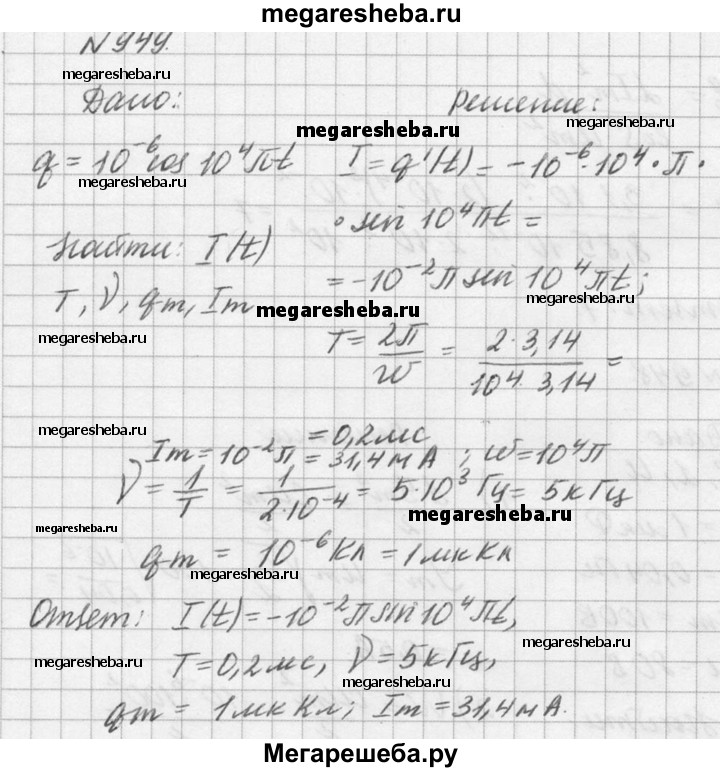 megaresheba.ru
N 949.
megaresheba.ru
Дано: Решение:
megaresheba.ru
megaresheba.ru
q = 10⁻⁶ cos 10⁴πt I = q'(t) = -10⁻⁶ · 10⁴ · π ·
megaresheba.ru
megaresheba.ru
· sin 10⁴πt =
Найти: I(t)
= -10⁻²π sin 10⁴πt;
megaresheba.ru
T, ν, qm, Im
megaresheba.ru
megaresheba.ru
T = 2π/ω = 2·3,14/10⁴·3,14 =
= 0,2мс
megaresheba.ru
Im = 10⁻²π = 31,4мА; ω = 10⁴π
megaresheba.ru
ν = 1/T = 1/2·10⁻⁴ = 5·10³ Гц = 5кГц
megaresheba.ru
megaresheba.ru
qm = 10⁻⁶ Кл = 1мкКл
megaresheba.ru
Ответ: I(t) = -10⁻²π sin 10⁴πt,
megaresheba.ru
T = 0,2мс, ν = 5кГц,
megaresheba.ru
megaresheba.ru
qm = 1мкКл; Im = 31,4мА.
Мегарешеба.ру